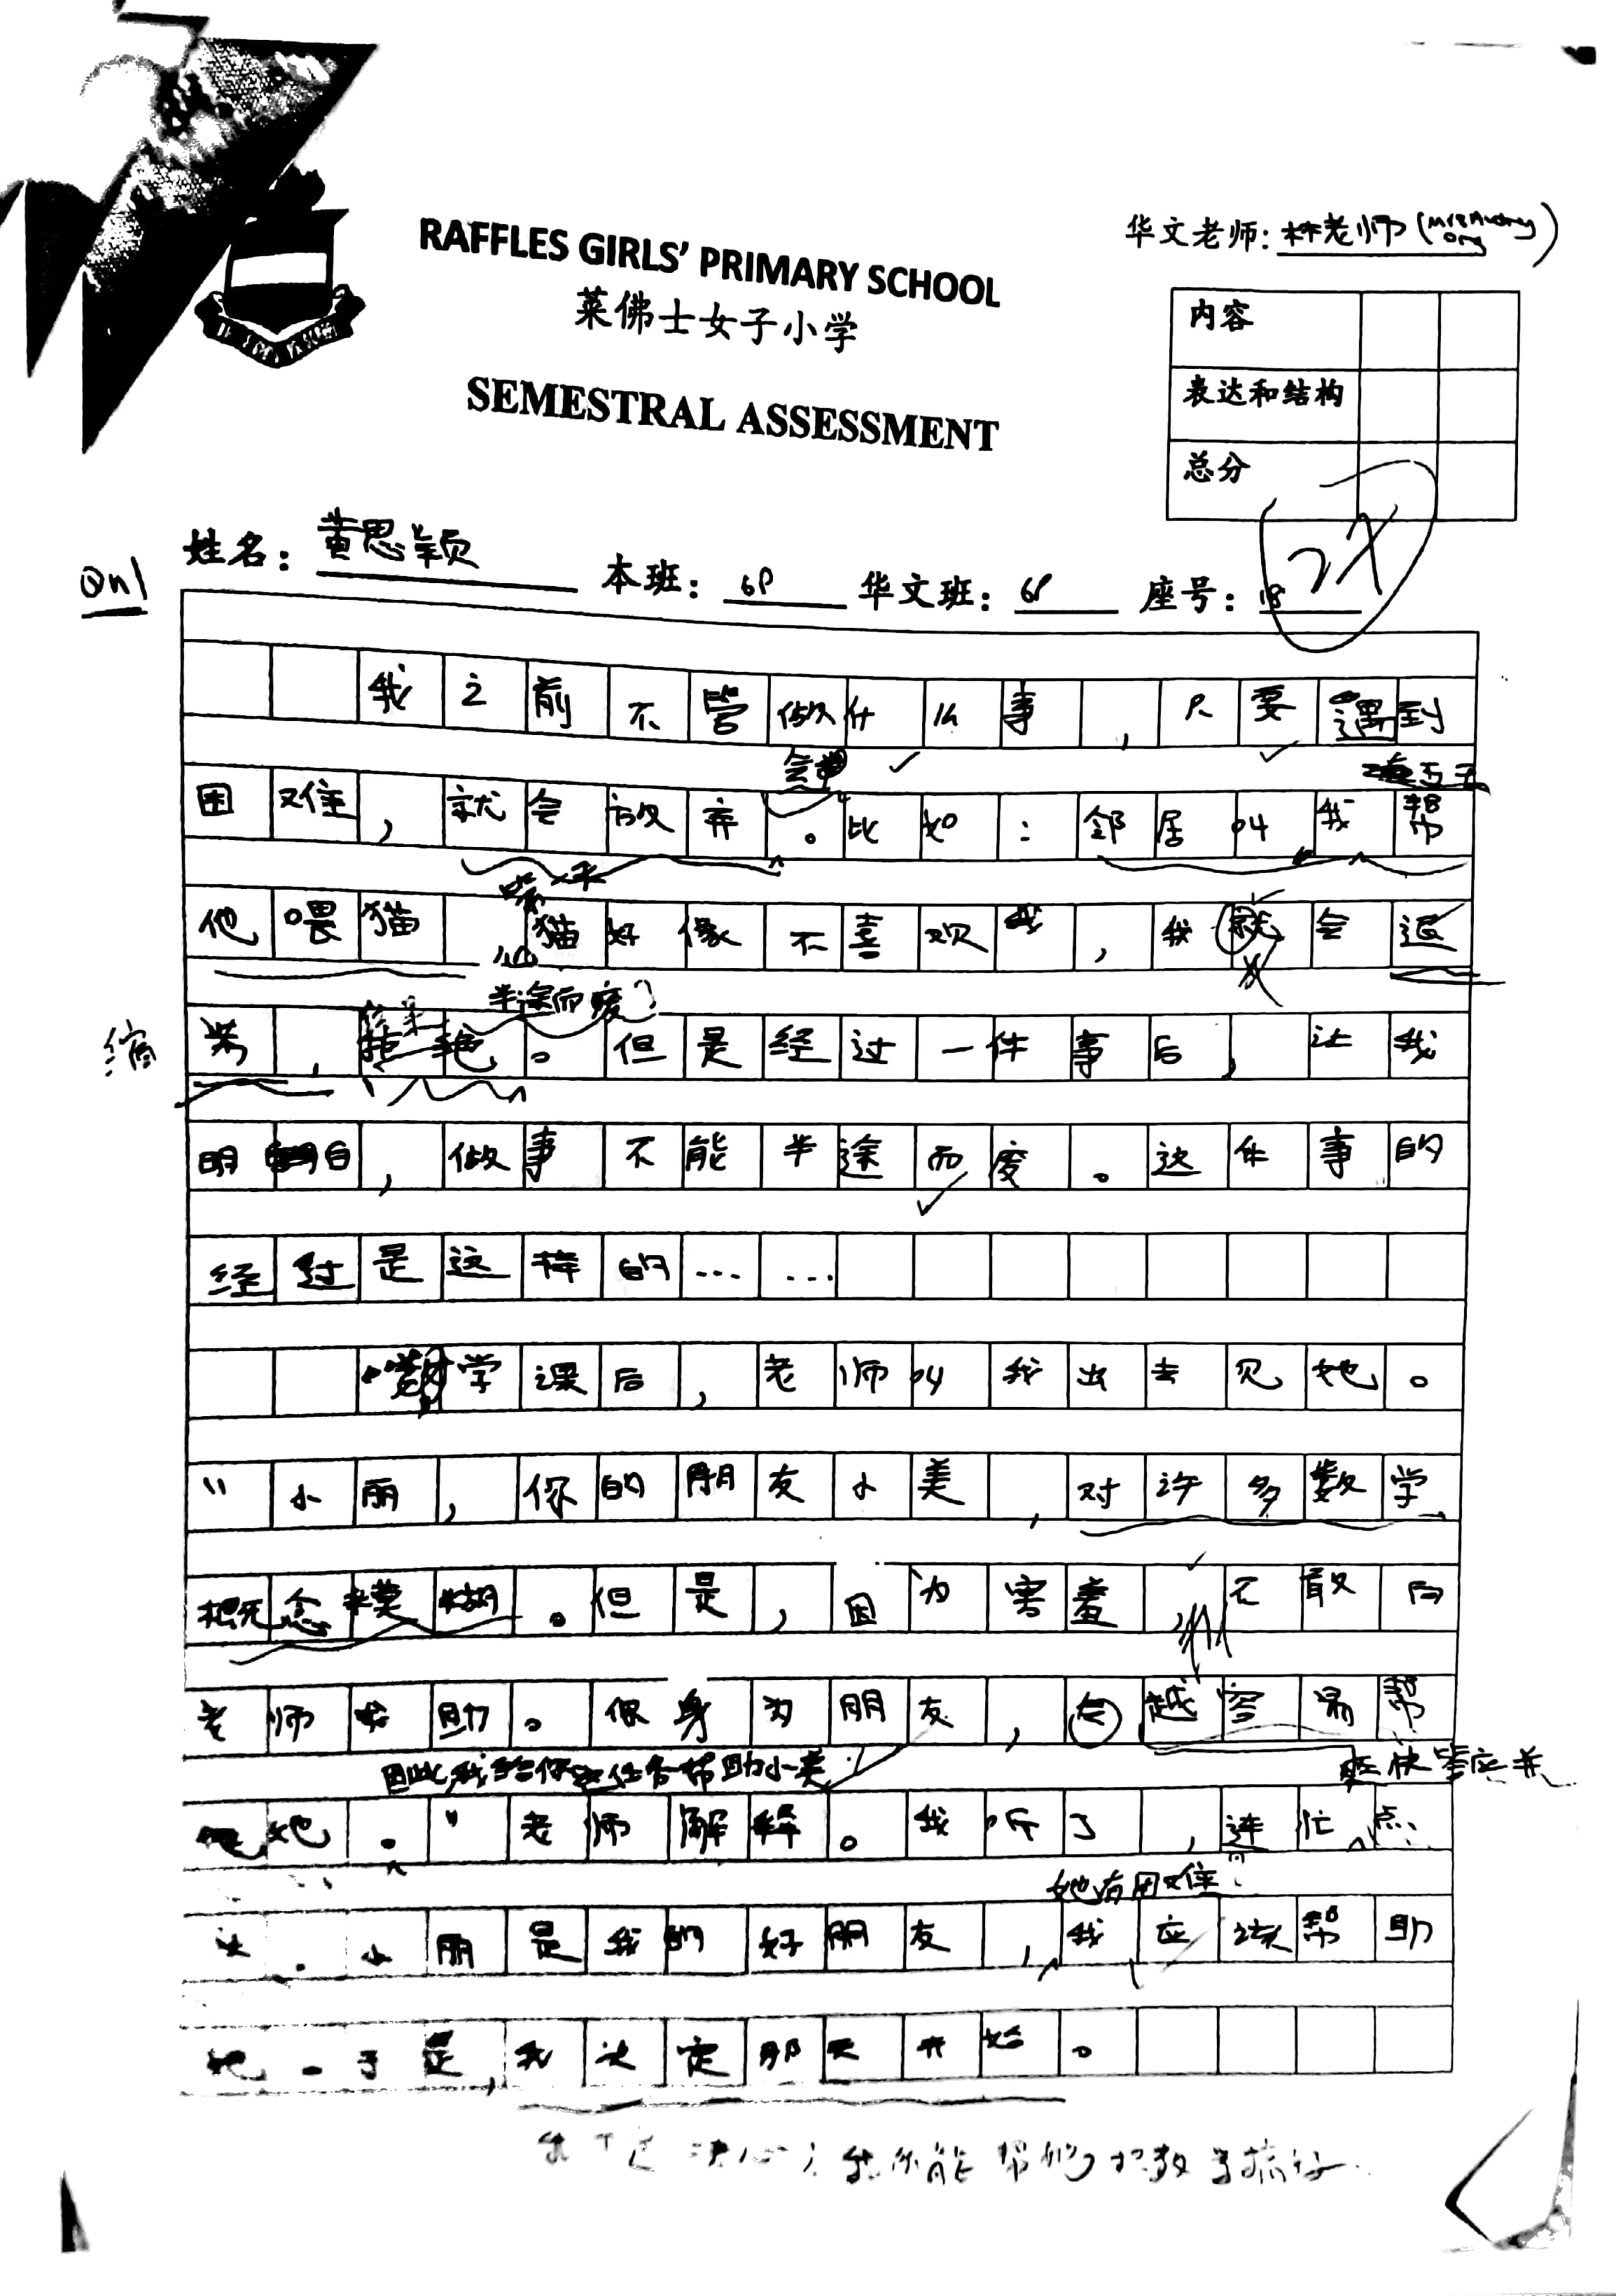 RAFFLES GIRLS' PRIMARY SCHOOL
莱佛士女子小学
SEMESTRAL ASSESSMENT
华文老师：林老师 (Mrs Audrey Ong)
内容
表达和结构
总分
姓名：黄思颖 本班：6P 华文班：6P 座号：18
Qn1
我之前不管做什么事，只要遇到
困难，就会放弃。比如：邻居叫我帮
他喂猫，猫好像不喜欢我，我就会退
缩
半途而废
。但是经过一件事后，让我
明白，做事不能半途而废。这件事的
经过是这样的……
数学课后，老师叫我出去见她。
“小丽，你的朋友小美，对许多数学
概念模糊。但是，因为害羞，不敢向
老师求助。你身为朋友，会越容易帮
因此，我给你任务帮助小美
爽快答应并
她。”老师解释。我听了，连忙点
她有困难
头。小丽是我的好朋友，我应该帮助
她。于是，我决定那天开始。